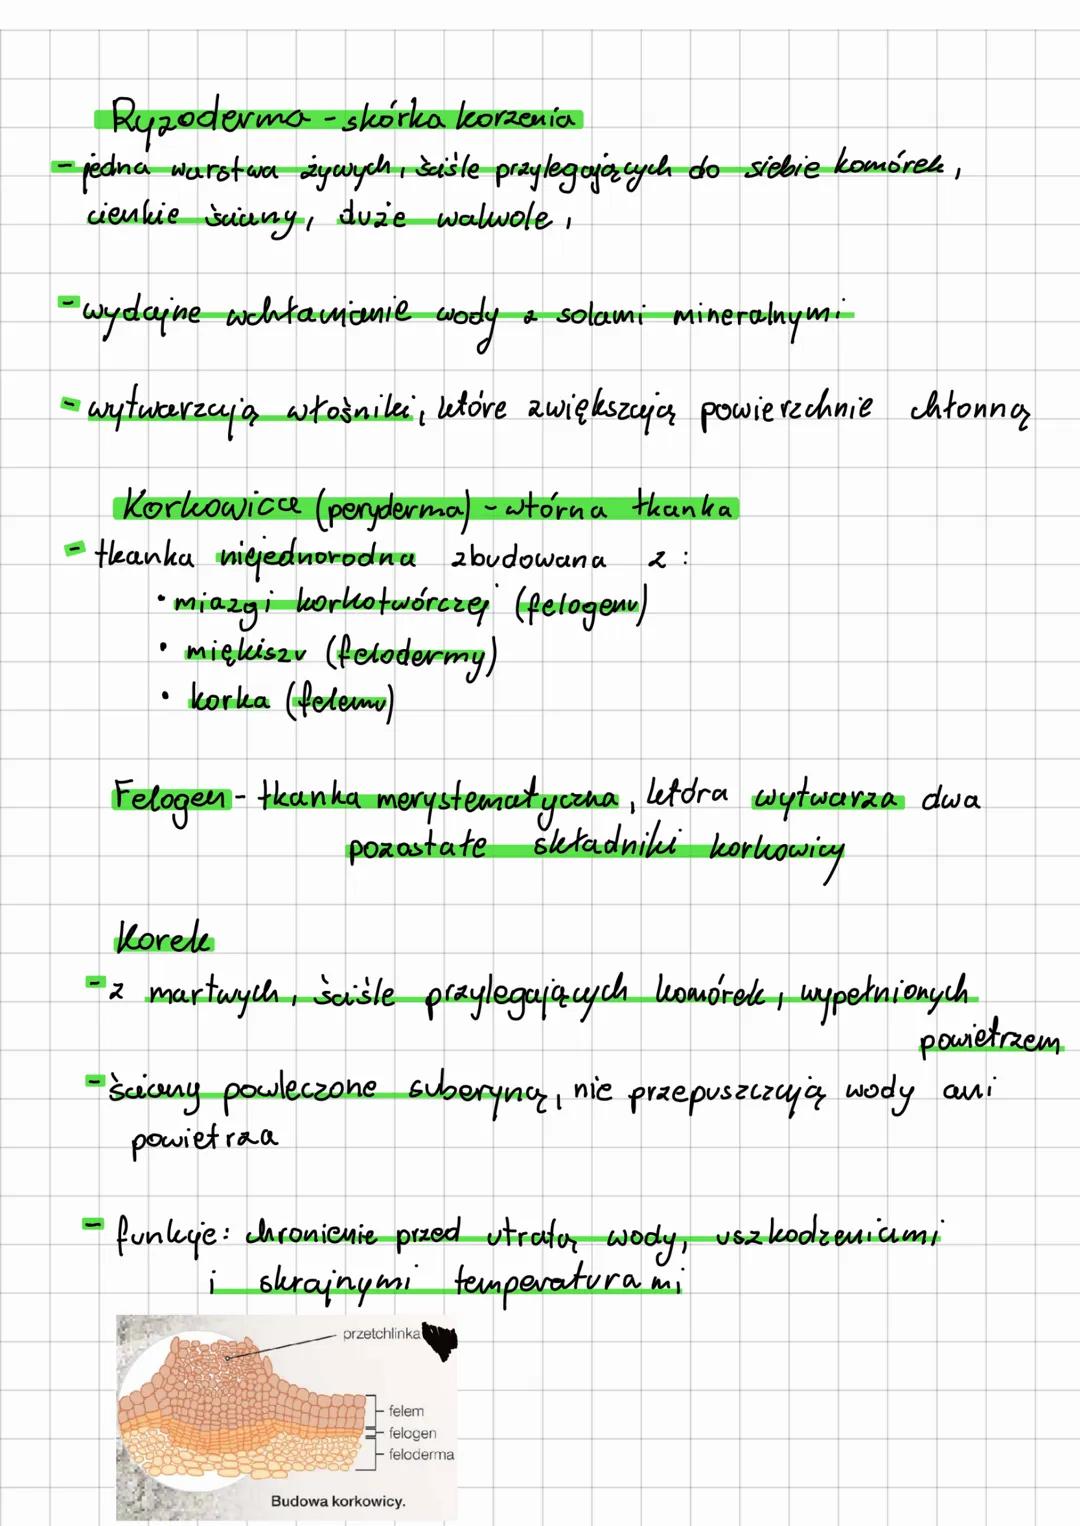 Ryzoderma - skórka korzenia
- jedna warstwa żywych, ściśle przylegających do siebie komórek,
cienkie ściany, duże wakuole,
- wydajne wchłanianie wody z solami mineralnymi
- wytwarzają włośniki, które zwiększają powierzchnie chłonną
Korkowica (peryderma) - wtórna tkanka
- tkanka niejednorodna zbudowana z:
• miazgi korkotwórczej (felogenu)
• miękiszu (felodermy)
• korka (felemu)
Felogen - tkanka merystematyczna, która wytwarza dwa
pozostałe składniki korkowicy
Korek
- z martwych, ściśle przylegających komórek, wypełnionych
powietrzem
- ściany powleczone suberyną, nie przepuszczają wody ani
powietrza
- funkcje: chronienie przed utratą wody, uszkodzeniami
i skrajnymi temperaturami
przetchlinka
felem
felogen
feloderma
Budowa korkowicy.